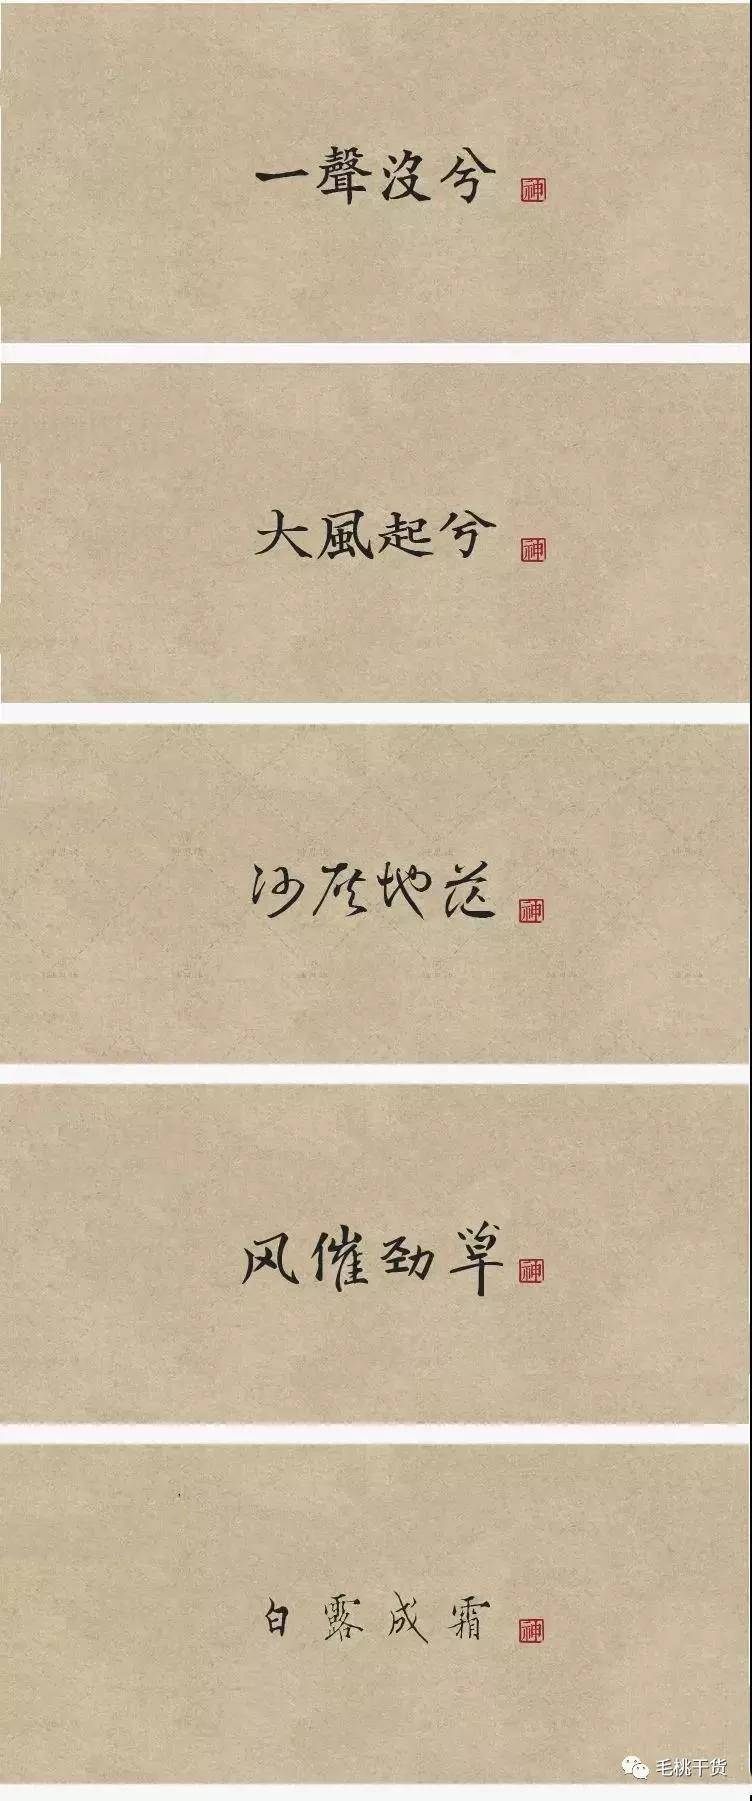 一聲沒兮
神
大風起兮
神
沙灰地茫
神
风催劲草
神
白露成霜
神
毛桃干货